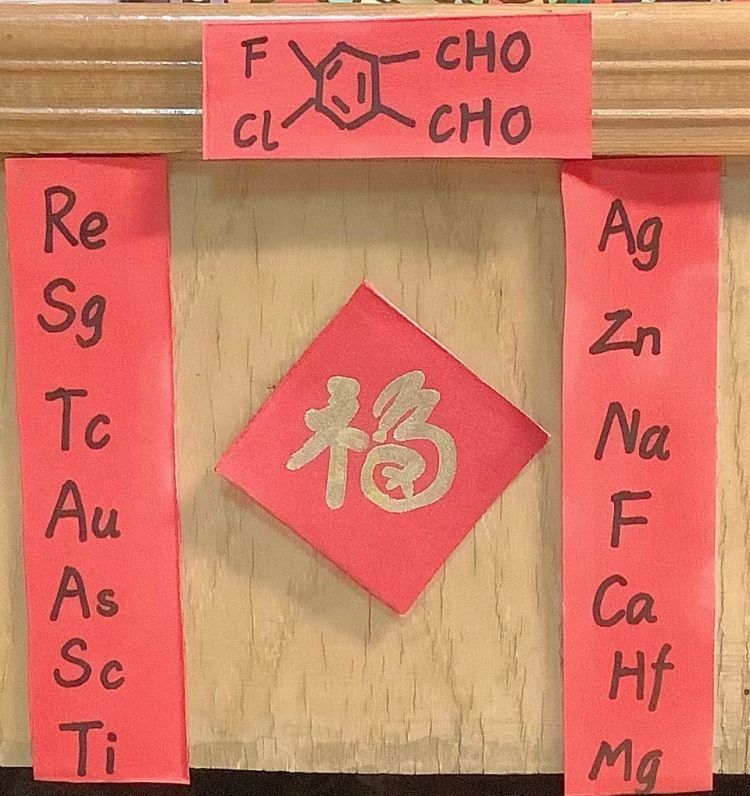 F CHO
Cl CHO
Re
Sg
Tc
Au
As
Sc
Ti
福
Ag
Zn
Na
F
Ca
Hf
Mg